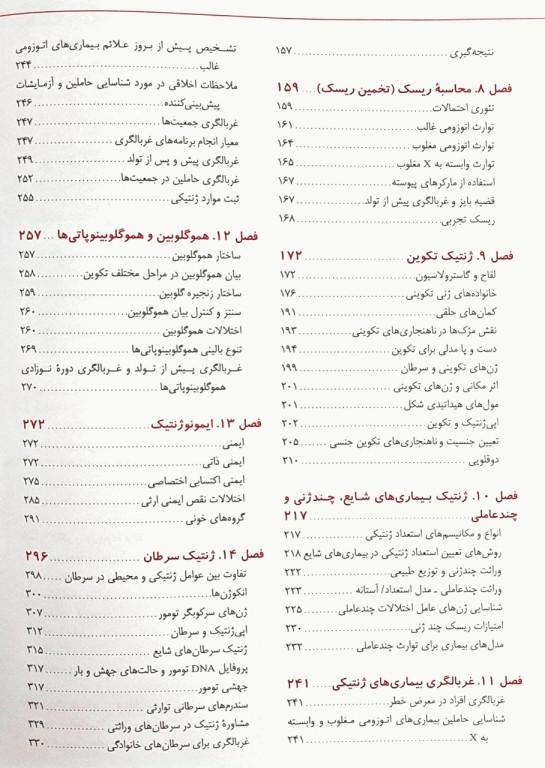 نتیجه‌گیری ۱۵۷
فصل ۸. محاسبهٔ ریسک (تخمین ریسک) ۱۵۹
تئوری احتمالات ۱۵۹
توارث اتوزومی غالب ۱۶۱
توارث اتوزومی مغلوب ۱۶۴
توارث وابسته به X مغلوب ۱۶۵
استفاده از مارکرهای پیوسته ۱۶۷
قضیه بایز و غربالگری پیش از تولد ۱۶۷
ریسک تجربی ۱۶۸
فصل ۹. ژنتیک تکوین ۱۷۲
لقاح و گاسترولاسیون ۱۷۲
خانواده‌های ژنی تکوینی ۱۷۶
کمان‌های حلقی ۱۹۱
نقش مژک‌ها در ناهنجاری‌های تکوینی ۱۹۳
دست و پا مدلی برای تکوین ۱۹۴
ژن‌های تکوینی و سرطان ۱۹۹
اثر مکانی و ژن‌های تکوینی ۲۰۱
مول‌های هیداتیدی شکل ۲۰۱
اپی‌ژنتیک و تکوین ۲۰۲
تعیین جنسیت و ناهنجاری‌های تکوین جنسی ۲۰۵
دوقلویی ۲۱۰
فصل ۱۰. ژنتیک بیماری‌های شایع، چندژنی و
چندعاملی ۲۱۷
انواع و مکانیسم‌های استعداد ژنتیکی ۲۱۷
روش‌های تعیین استعداد ژنتیکی در بیماری‌های شایع ۲۱۸
وراثت چندژنی و توزیع طبیعی ۲۲۲
وراثت چندعاملی ـ مدل استعداد/ آستانه ۲۲۳
شناسایی ژن‌های عامل اختلالات چندعاملی ۲۲۵
امتیازات ریسک چند ژنی ۲۳۰
مدل‌های بیماری برای توارث چندعاملی ۲۳۲
فصل ۱۱. غربالگری بیماری‌های ژنتیکی ۲۴۱
غربالگری افراد در معرض خطر ۲۴۱
شناسایی حاملین بیماری‌های اتوزومی مغلوب و وابسته
به X ۲۴۱
تشخیص پیش از بروز علائم بیماری‌های اتوزومی
غالب ۲۴۴
ملاحظات اخلاقی در مورد شناسایی حاملین و آزمایشات
پیش‌بینی‌کننده ۲۴۶
غربالگری جمعیت‌ها ۲۴۷
معیار انجام برنامه‌های غربالگری ۲۴۷
غربالگری پیش و پس از تولد ۲۴۹
غربالگری حاملین در جمعیت‌ها ۲۵۲
ثبت موارد ژنتیکی ۲۵۵
فصل ۱۲. هموگلوبین و هموگلوبینوپاتی‌ها ۲۵۷
ساختار هموگلوبین ۲۵۷
بیان هموگلوبین در مراحل مختلف تکوین ۲۵۸
ساختار زنجیره گلوبین ۲۵۹
سنتز و کنترل بیان هموگلوبین ۲۶۰
اختلالات هموگلوبین ۲۶۰
تنوع بالینی هموگلوبینوپاتی‌ها ۲۶۹
غربالگری پیش از تولد و غربالگری دورهٔ نوزادی
هموگلوبینوپاتی‌ها ۲۷۰
فصل ۱۳. ایمونوژنتیک ۲۷۲
ایمنی ۲۷۲
ایمنی ذاتی ۲۷۲
ایمنی اکتسابی اختصاصی ۲۷۵
اختلالات نقص ایمنی ارثی ۲۸۵
گروه‌های خونی ۲۹۱
فصل ۱۴. ژنتیک سرطان ۲۹۶
تفاوت بین عوامل ژنتیکی و محیطی در سرطان ۲۹۸
انکوژن‌ها ۳۰۰
ژن‌های سرکوبگر تومور ۳۰۷
اپی‌ژنتیک و سرطان ۳۱۲
ژنتیک سرطان‌های شایع ۳۱۵
پروفایل DNA تومور و حالت‌های جهش و بار ۳۱۷
جهشی تومور ۳۱۷
سندرم‌های سرطانی توارثی ۳۲۱
مشاورهٔ ژنتیک در سرطان‌های وراثتی ۳۲۹
غربالگری برای سرطان‌های خانوادگی ۳۳۰